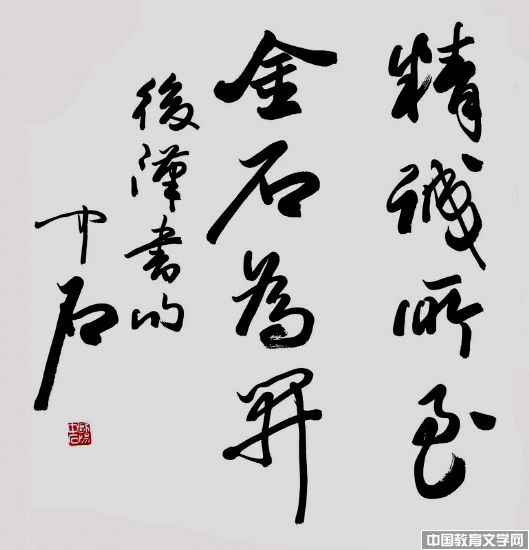 精誠所至
金石為開
後漢書
中石
中国教育文学网